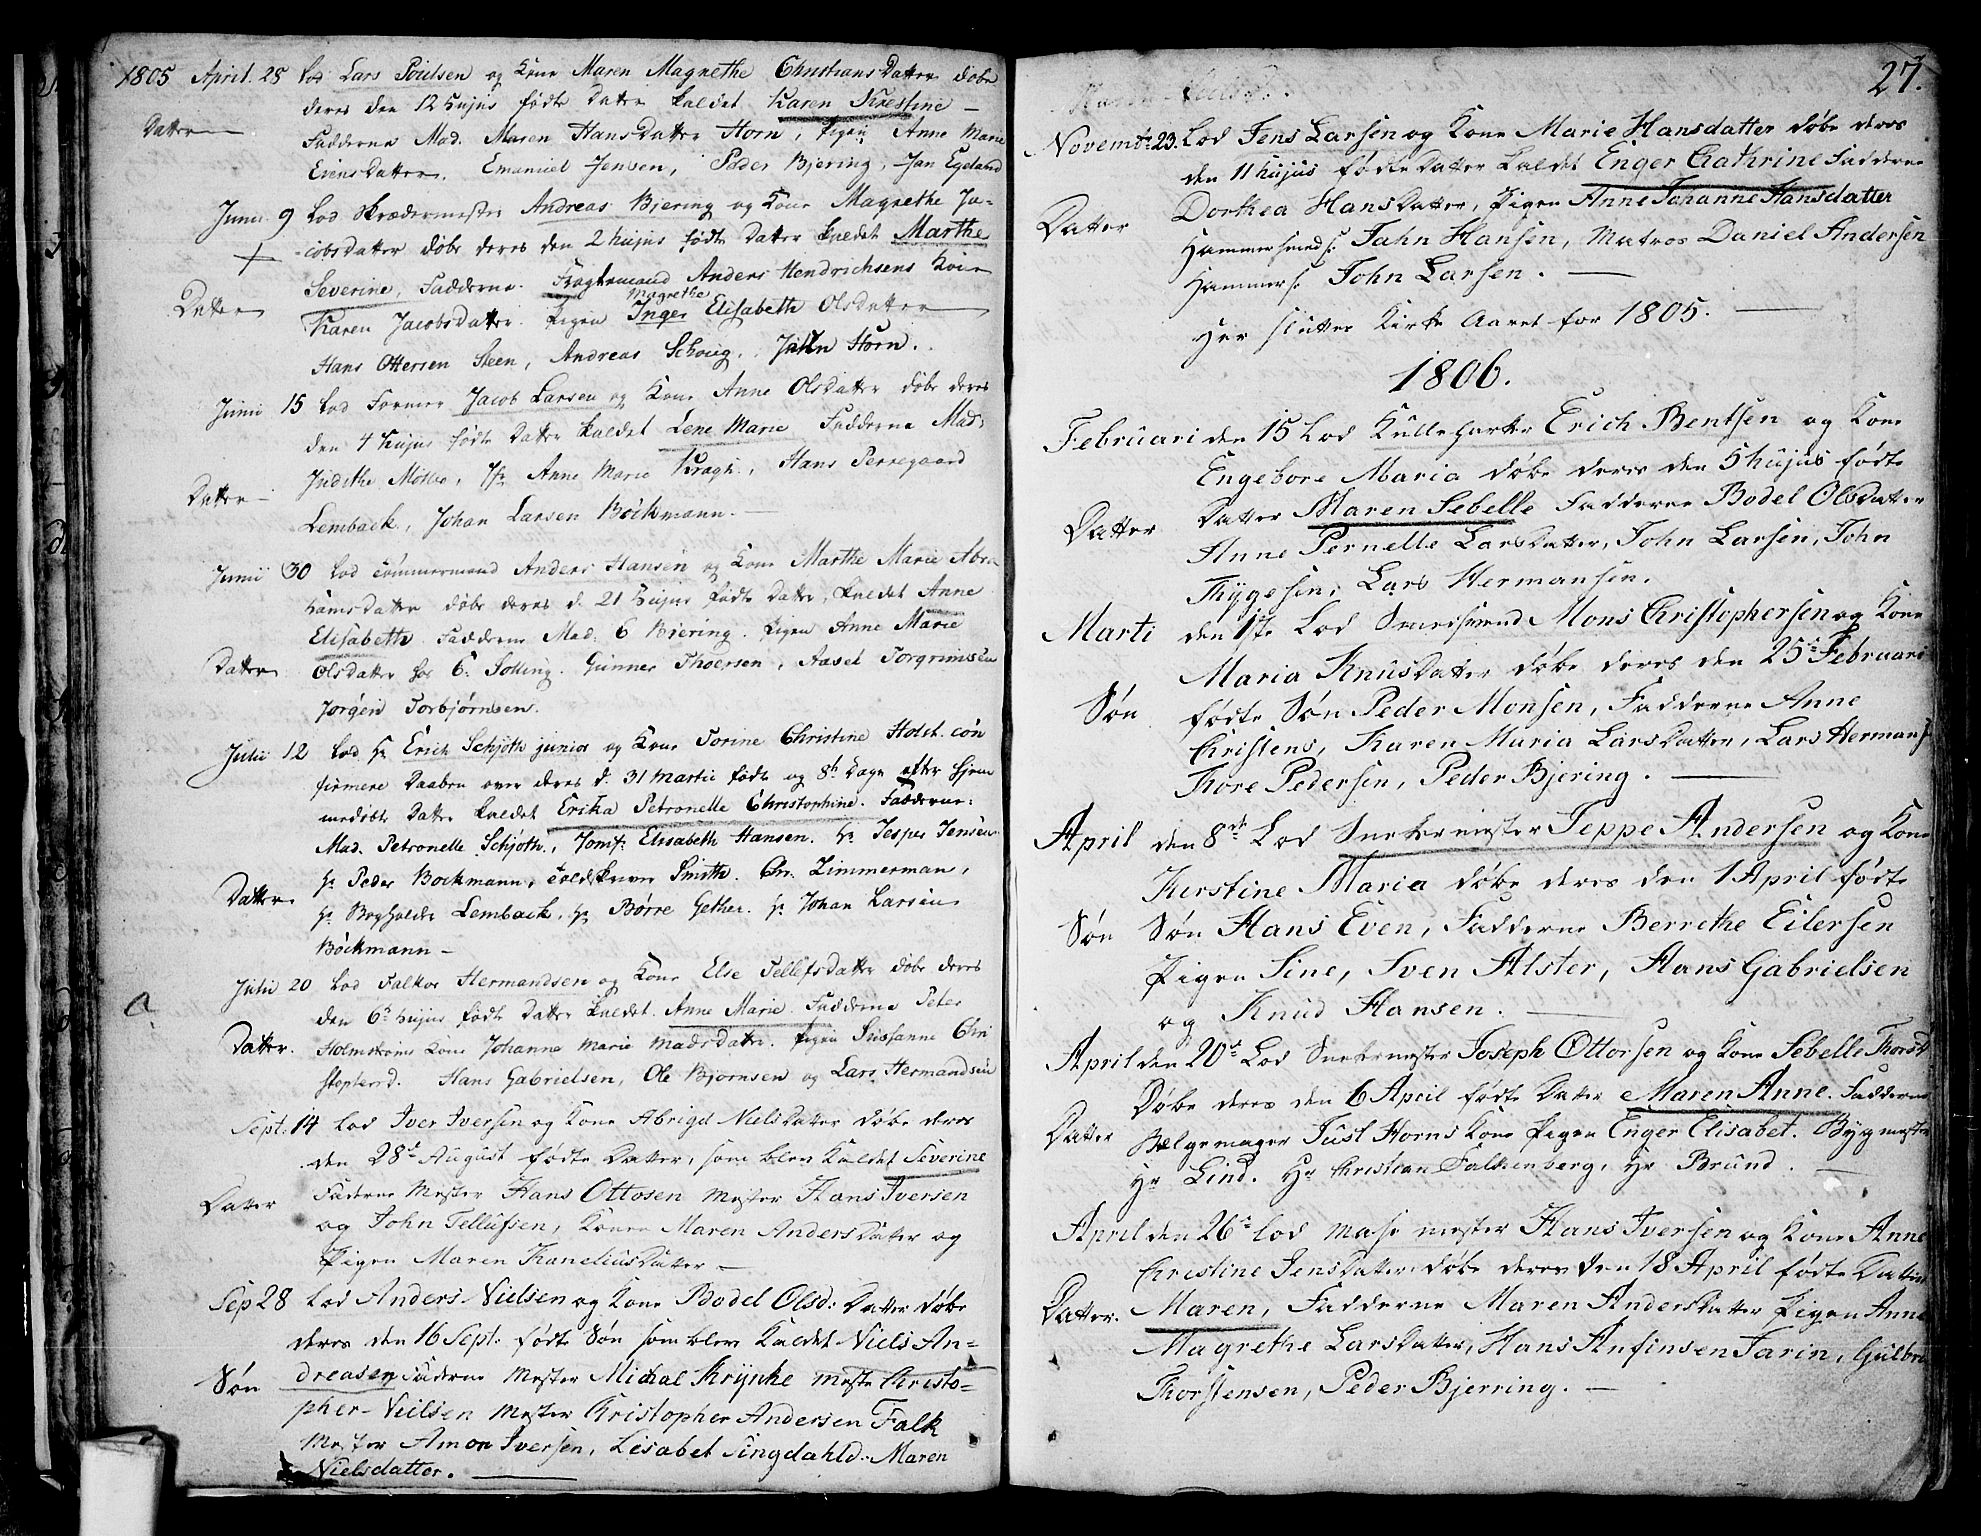 1805 April. 28 Lod Lars Poulsen og Kone Maren Magnethe Christiansdatter døbe
deres den 12 hujus fødte Datter kaldet Karen Kirestine –
Datter
Fadderne Mad. Maren Hansdatter Horn, Pigen Anne Marie
Eviensdatter, Emanuel Jensen, Peder Bjering, Jan Egeland
Junii 9 Lod Skrædermester Andreas Bjering og Kone Magrethe Ja-
cobsdatter døbe deres den 2 hujus fødte Datter kaldet Marthe
Severine, Fadderne. Fragtemand Anders Hendrichsens Kone
Datter
Magrethe
Karen Jacobsdatter. Pigen Inger Elisabeth Olsdatter
Hans Ottersen Steen, Andreas Schoug, John Horn.
Junii 15 Lod Former Jacob Larsen og Kone Anne Olsdatter døbe deres
den 4 hujus fødte Datter kaldet Lene Marie Fadderne Mad.
Judithe Møller, Jfr Anne Marie Kragh, Hans Perregaard
Datter
Lembach, Johan Larsen Böckmann. –
Junii 30 Lod Tømmermand Anders Hansen og Kone Marthe Marie Abra
hamsdatter døbe deres d. 21 hujus fødte Datter, kaldet Anne
Elisabeth. Fadderne Mad: 6 Bjering. Pigen Anne Marie
Datter
Olsdatter hos 6. Solling. Gunner Thoersen, Aasel Torgrimsen
Jørgen Torbjørnsen.
Julii 12 Lod Hr Erich Schjøth junior og Kone Torine Christine Holst. con
firmere Daaben over deres d. 31 Martii fødte og 8de Dagen efter hjem
medøbte Datter kaldet Erika Petronelle Christophine. Fadderne:
Mad. Petronelle Schjøth, Jomf: Elisabeth Hansen. Hr Jesper Jensen
Hr Peder Bockmann, Toldskriver Smith. Chr. Zimmerman,
Datter
Hr Bogholder Lembach, Hr Børre Gether. Hr Johan Larsen
Böckmann –
Julii 20 Lod Falkor Hermandsen og Kone Else Tellefsdatter døbe deres
a.
den 6te hujus fødte Datter kaldet Anne Marie. Fadderne Peter
Datter.
Holmstrøms Kone Johanne Marie Madsdatter. Pigen Sussanne Chri
stophersd. Hans Gabrielsen, Ole Bjørnsen og Lars Hermandsen
Sept: 14 Lod Iver Iversen og Kone Abrigd Nielsdatter døbe deres
den 28de August fødte Datter, som blev kaldet Severine
Datter
Faderne Mester Hans Ottosen Mester Hans Iversen
og John Tellufsen, Konen Maren Andersdatter og
Pigen Maren Kaneliusdatter –
Sep 28 Lod Anders Nielsen og Kone Bodel Olsd: Datter døbe
deres den 16 Sept: fødte Søn som blev kaldet Niels An=
Søn
dreasen Faderne Mester Michal Krynke Mester Christo=
pher Neilsen Mester Christopher Andersen Falk
Mester Amon Iversen, Lisabet Singdahld. Maren
Nielsdatter.
27.
Novembr 23. Lod Jens Larsen og Kone Marie Hansdatter døbe deres
den 11 hujus fødte Datter kaldet Enger Cathrine Fadderne
Datter
Dorthea Hansdatter, Pigen Anne Johanne Hansdatter
Hammersmed s. Jahn Hansen, Matros Daniel Andersen
Hammer s. John Larsen.
Her slutter Kirke Aaret for 1805.
1806.
Februari den 15 Lod Kullehacker Erich Bentsen og Kone
Engebore Maria døbe deres den 5 hujus fødte
Datter
Datter Maren Sebelle Fadderne Bodel Olsdatter
Anne Pernelle Larsdatter, John Larsen, John
Thygesen, Lars Hermansen.
Marti den 1ste Lod Smedsvend Mons Christophersen og Kone
Maria Knusdatter døbe deres den 25de Februari
Søn
fødte Søn Peder Monsen, Fadderne Anne
Cristens, Karen Maria Larsdatter, Lars Hermans
Thore Pedersen, Peder Bjering.
April den 8de Lod Snekermester Jeppe Andersen og Kone
Kerstine Maria døbe deres den 1 April fødte
Søn
Søn Hans Even, Fadderne Berrethe Eilersen
Pigen Sine, Sven Alster, Hans Gabrielsen
og Knud Hansen.
April den 20de Lod Snekermester Joseph Ottorsen og Kone Sebelle Thorsd
Døbe deres den 6 April fødte Dater Maren Anne. Fadderne
Datter
Bælgemager Just Horns Kone Pigen Enger Elisabet. Bygmester
Hr Lind. Hr Cristian Falkenberg, Hr Brund.
April den 26de Lod Masemester Hans Iversen og Kone Anne
Cristine Jensdatter døbe deres den 18 April fødte Datter
Datter.
Maren, Fadderne Maren Andersdatter Pigen Anne
Magrethe Larsdatter, Hans Anfinsen Tarin, Gulbra
Thorstensen, Peder Bjerring. –